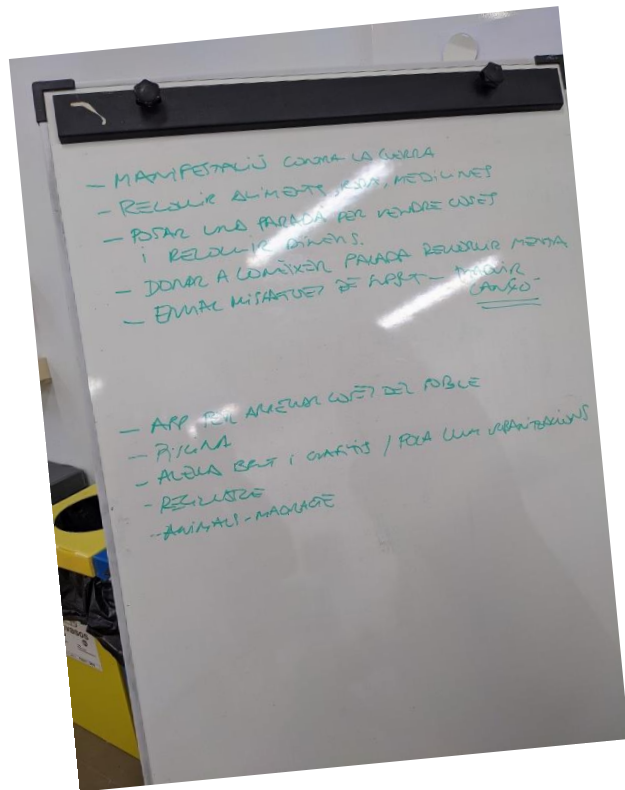 - MANIFESTACIÓ CONTRA LA GUERRA
- RECOLLIR ALIMENTS, ROBA, MEDICINES
- POSAR UNA PARADA PER VENDRE COSES
I RECOLLIR DINERS.
- DONAR A CONÈIXER PARADA RECOLLIR MENJA
- ENVIAR MISSATGES DE SUPORT -
CANÇÓ
- APP PER ARREGLAR COSES DEL POBLE
- PISCINA
- BRUT I GRAFITIS / POCA LLUM URBANITZACIONS
- RECICLATGE
- ANIMALS - MALTRACTE